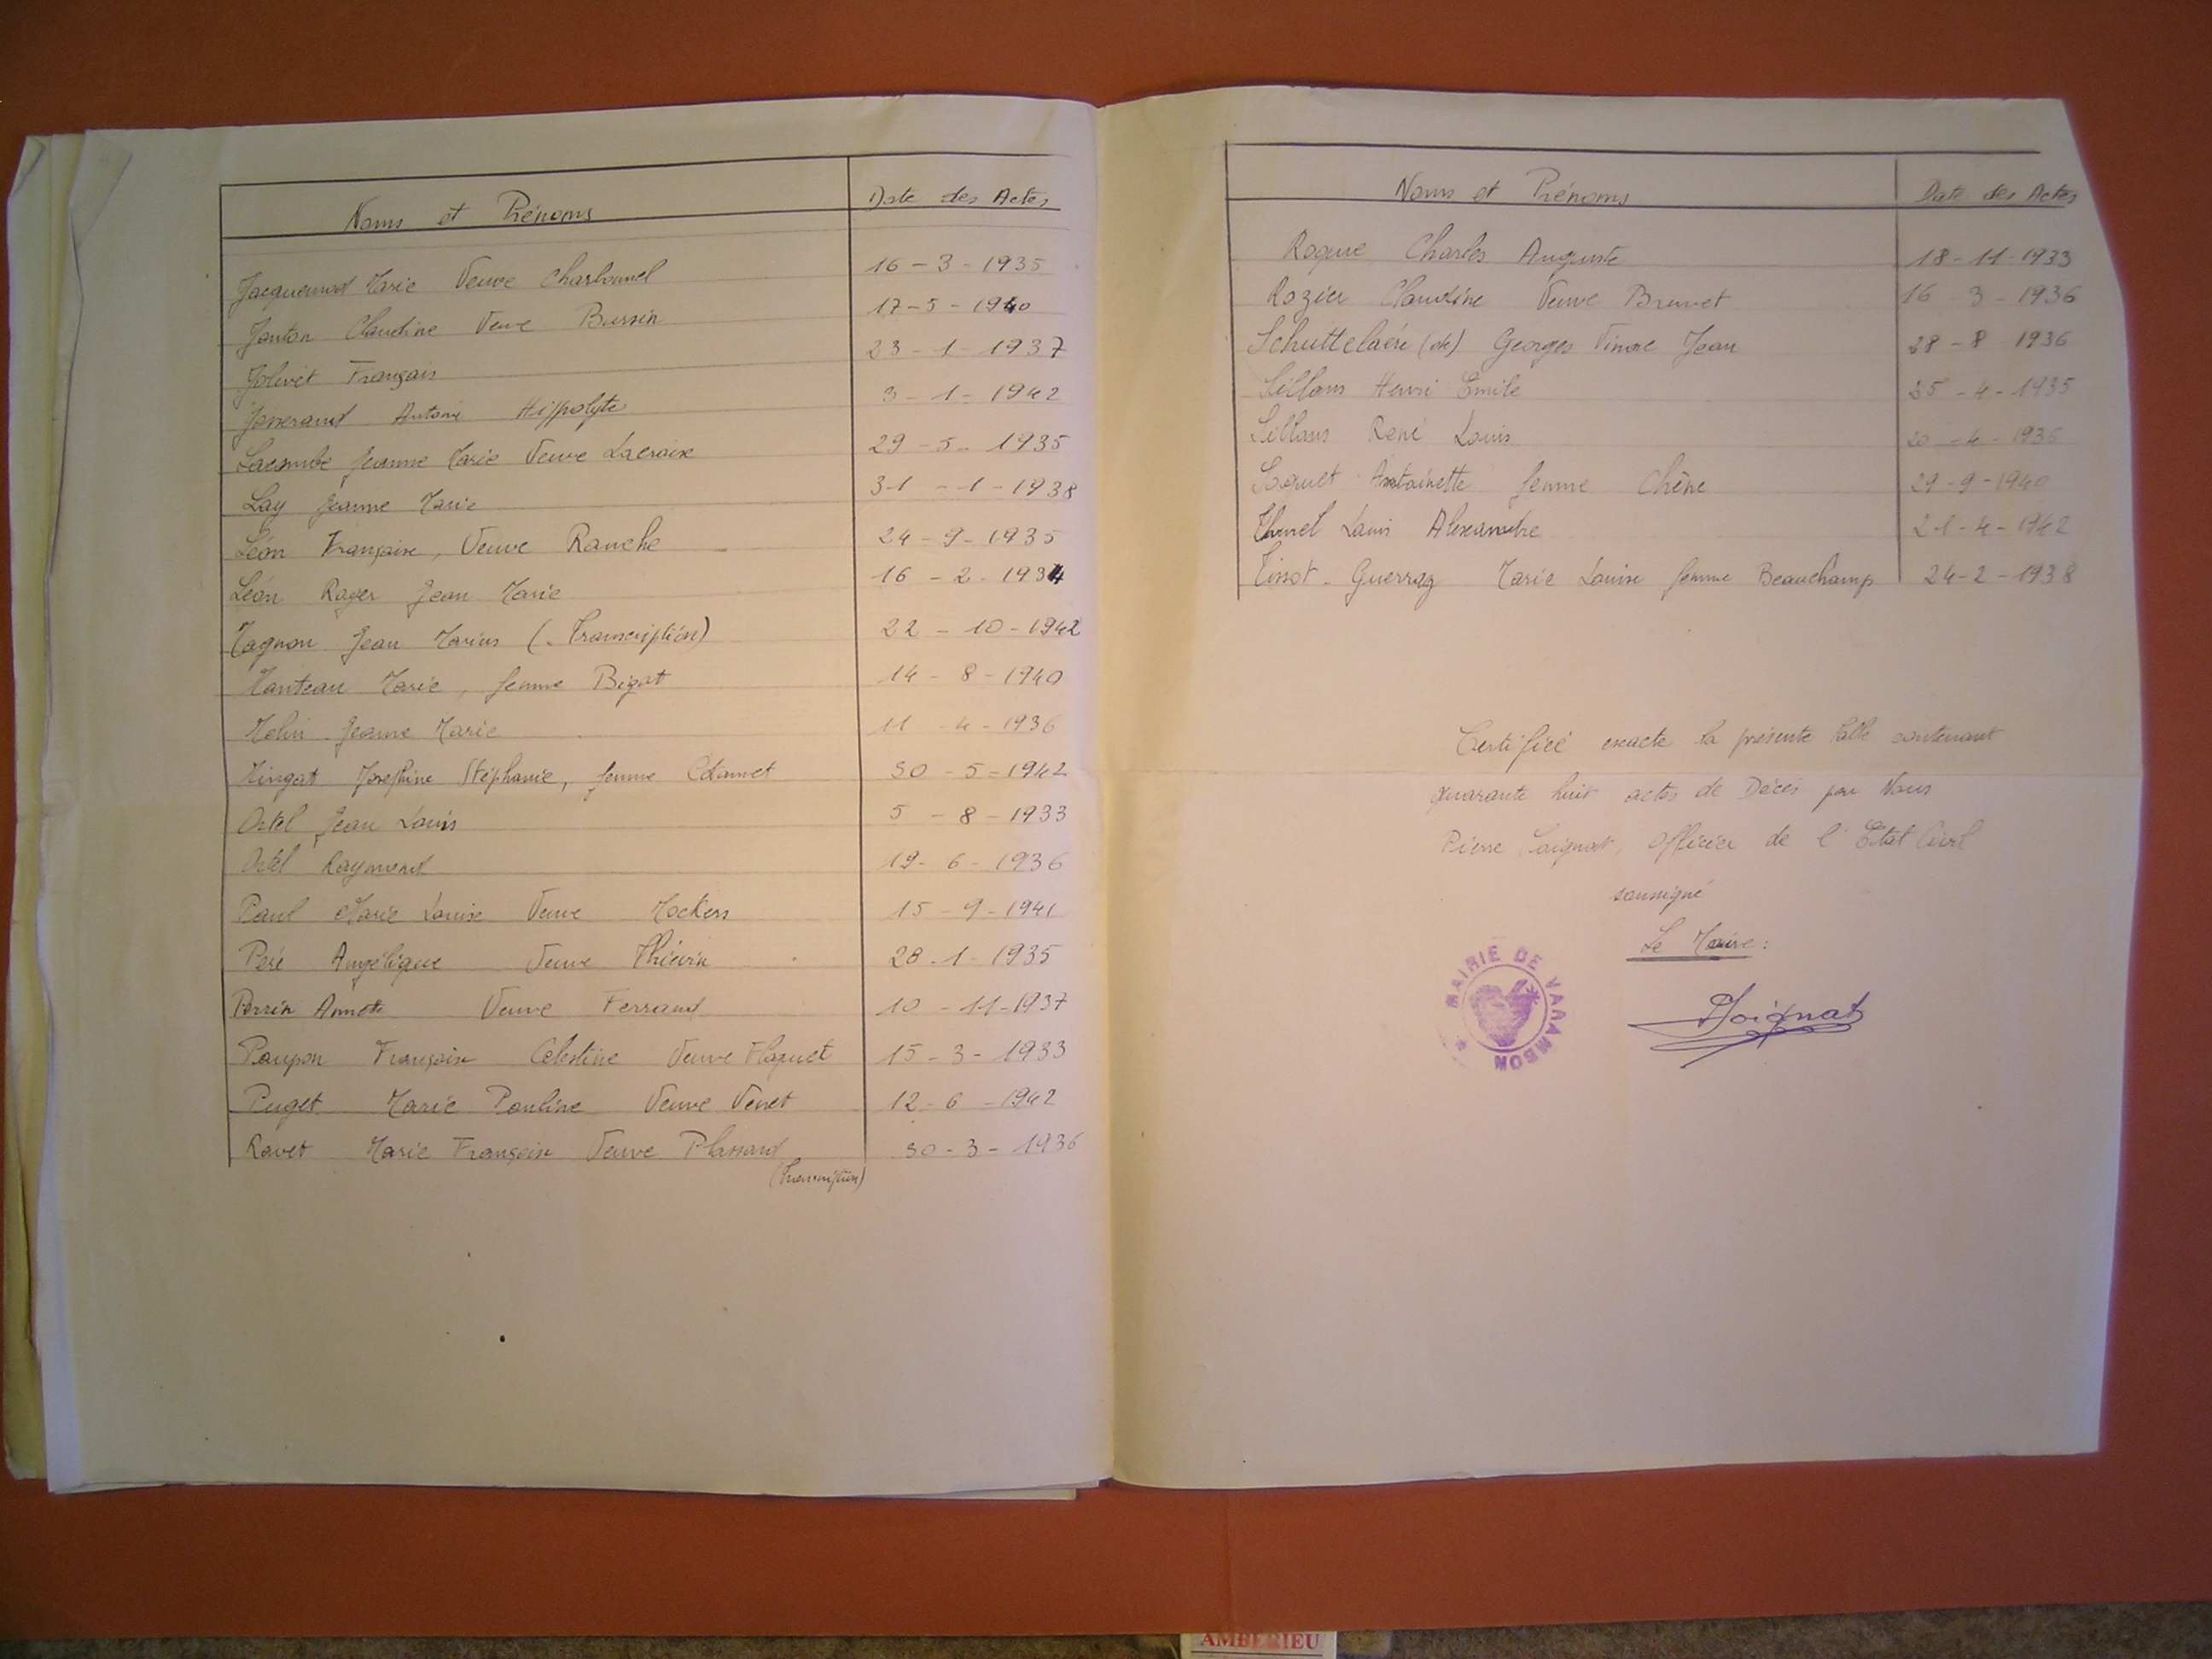 Noms et Prénoms Date des Actes
Jacquemod Marie Veuve Charbonnel 16-3-1935
Janton Claudine Veuve Bussin 17-5-1940
Jolivet François 23-1-1937
Josserand Antoine Hippolyte 3-1-1942
Lacombe Jeanne Marie Veuve Lacroix 29-5-1935
Lay Jeanne Marie 31-1-1938
Léon Françoise, Veuve Ranche 24-9-1935
Léon Roger Jean Marie 16-2-1934
Magnon Jean Marius (Transcription) 22-10-1942
Manteau Marie, femme Bigot 14-8-1940
Jeanne Marie 11-4-1936
Mingat Joséphine Stéphanie, femme 30-5-1942
Ortel Jean Louis 5-8-1933
Ortel Raymond 19-6-1936
Paul Marie Louise Veuve Mockers 15-9-1941
Angélique Veuve Thiévin 28-1-1935
Perrin Annette Veuve Ferrand 10-11-1937
Poupon Françoise Celestine Veuve Floquet 15-3-1933
Puget Marie Pauline Veuve Venet 12-6-1942
Ravet Marie Françoise Veuve Plassard 30-3-1936
(Transcription)
Noms et Prénoms Date des Actes
Roque Charles Auguste 18-11-1933
Rozier Claudine Veuve Brunet 16-3-1936
Georges Jean 28-8-1936
Sillans Henri Emile 25-4-1935
Sillans René Louis
Soquet Antoinette femme Chêne 29-9-1940
Louis Alexandre 21-4-1942
Tissot-Guerraz Marie Louise femme Beauchamp 24-2-1938
Certifiée exacte la présente table contenant
quarante huit actes de Décès par Nous
Pierre Soignat, Officier de l'Etat Civil
soussigné
Le Maire:
MAIRIE DE VARAMBON
PSoignat
AMBERIEU